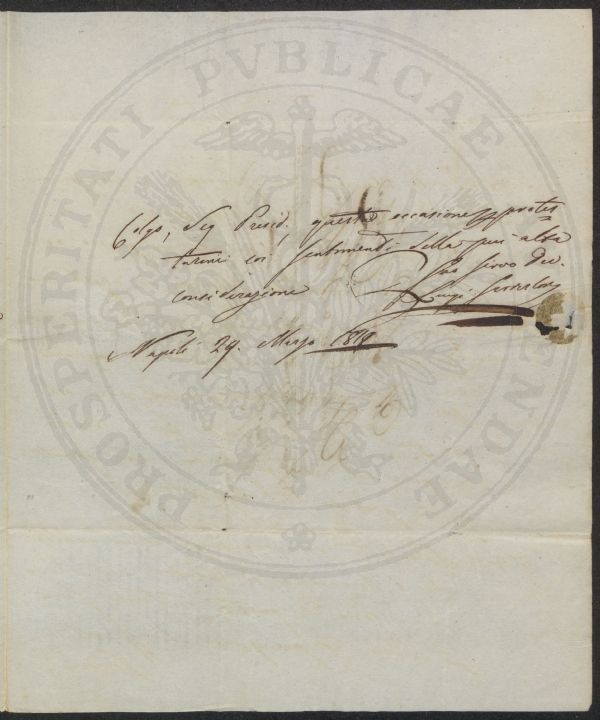 PROSPERITATI PVBLICAE AVGENDAE
Colgo, Sig Presid. questa occasione p protes
tarmi coi sentimenti della più alta
considerazione
Suo servo Dev.
Luigi
Napoli 29. Marzo 1819